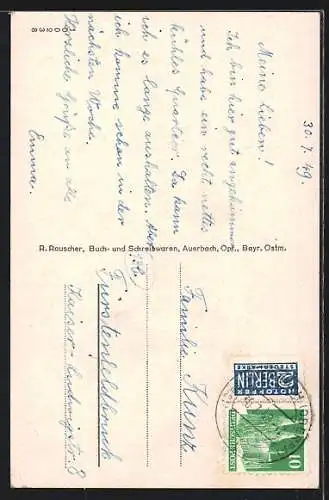 30.7.49.
Meine Lieben!
Ich bin hier gut angekommen
und habe ein recht nettes
kühles Quartier. Da kann
ich es lange aushalten. Aber
ich komme schon in der
nächsten Woche.
Herzliche Grüße an alle
Emma.
00238
R. Rauscher, Buch- und Schreibwaren, Auerbach, Opf., Bayr. Ostm.
Familie Kunz
Fürstenfeldbruck
Kaiser-Ludwigstr. 8
NOTOPFER
2 BERLIN
STEUERMARKE
DEUTSCHE POST
10